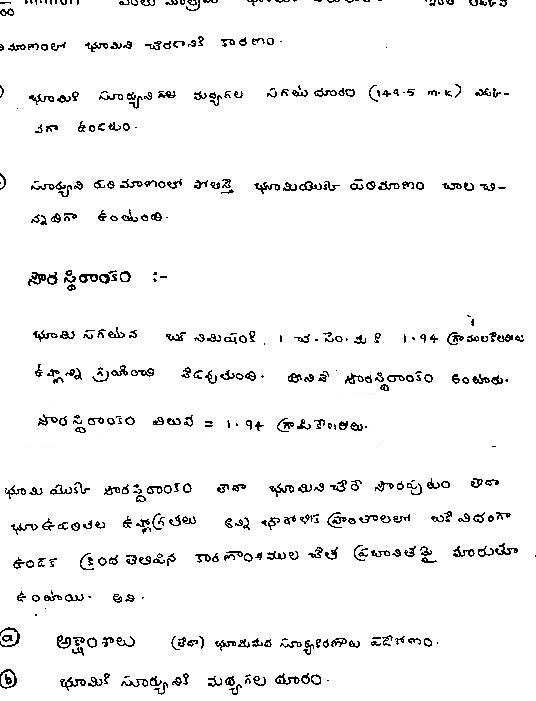 పరిమాణంలో భూమిని చేరడానికి కారణం.
భూమికి సూర్యునిగల మధ్యగల సగటుదూరం (149.5 m.k) ఎక్కు-
వగా ఉండటం.
సూర్యుని పరిమాణంలో పోలిస్తే భూమియొక్క పరిమాణం చాల చి-
న్నదిగా ఉంటుంది.
సౌర స్థిరాంకం :-
భూమి సగటున ఒక నిమిషంకి, 1 చ.సెం.మీ కి 1.94 గ్రాములకేలరీలు
ఉష్ణాన్ని గ్రహించి వేడెక్కుతుంది. దీనినే సౌరస్థిరాంకం అంటారు.
సౌర స్థిరాంకం విలువ = 1.94 గ్రామ్ కేలరీలు.
భూమి యొక్క సౌరస్థిరాంకం లేదా భూమిని చేరే సౌరపుటం లేదా
భూ ఉపరితల ఉష్ణోగ్రతలు అన్ని భౌగోళిక ప్రాంతాలలో ఒకే విధంగా
ఉండక క్రింద తెలిపిన కారణాంశముల చేత ప్రభావితమై మారుతూ
ఉంటాయి. అవి.
(a) అక్షాంశాలు (లేదా) భూమిమీద సూర్యకిరణాలు పడేకోణం.
(b) భూమికి సూర్యునికి మధ్యగల దూరం.